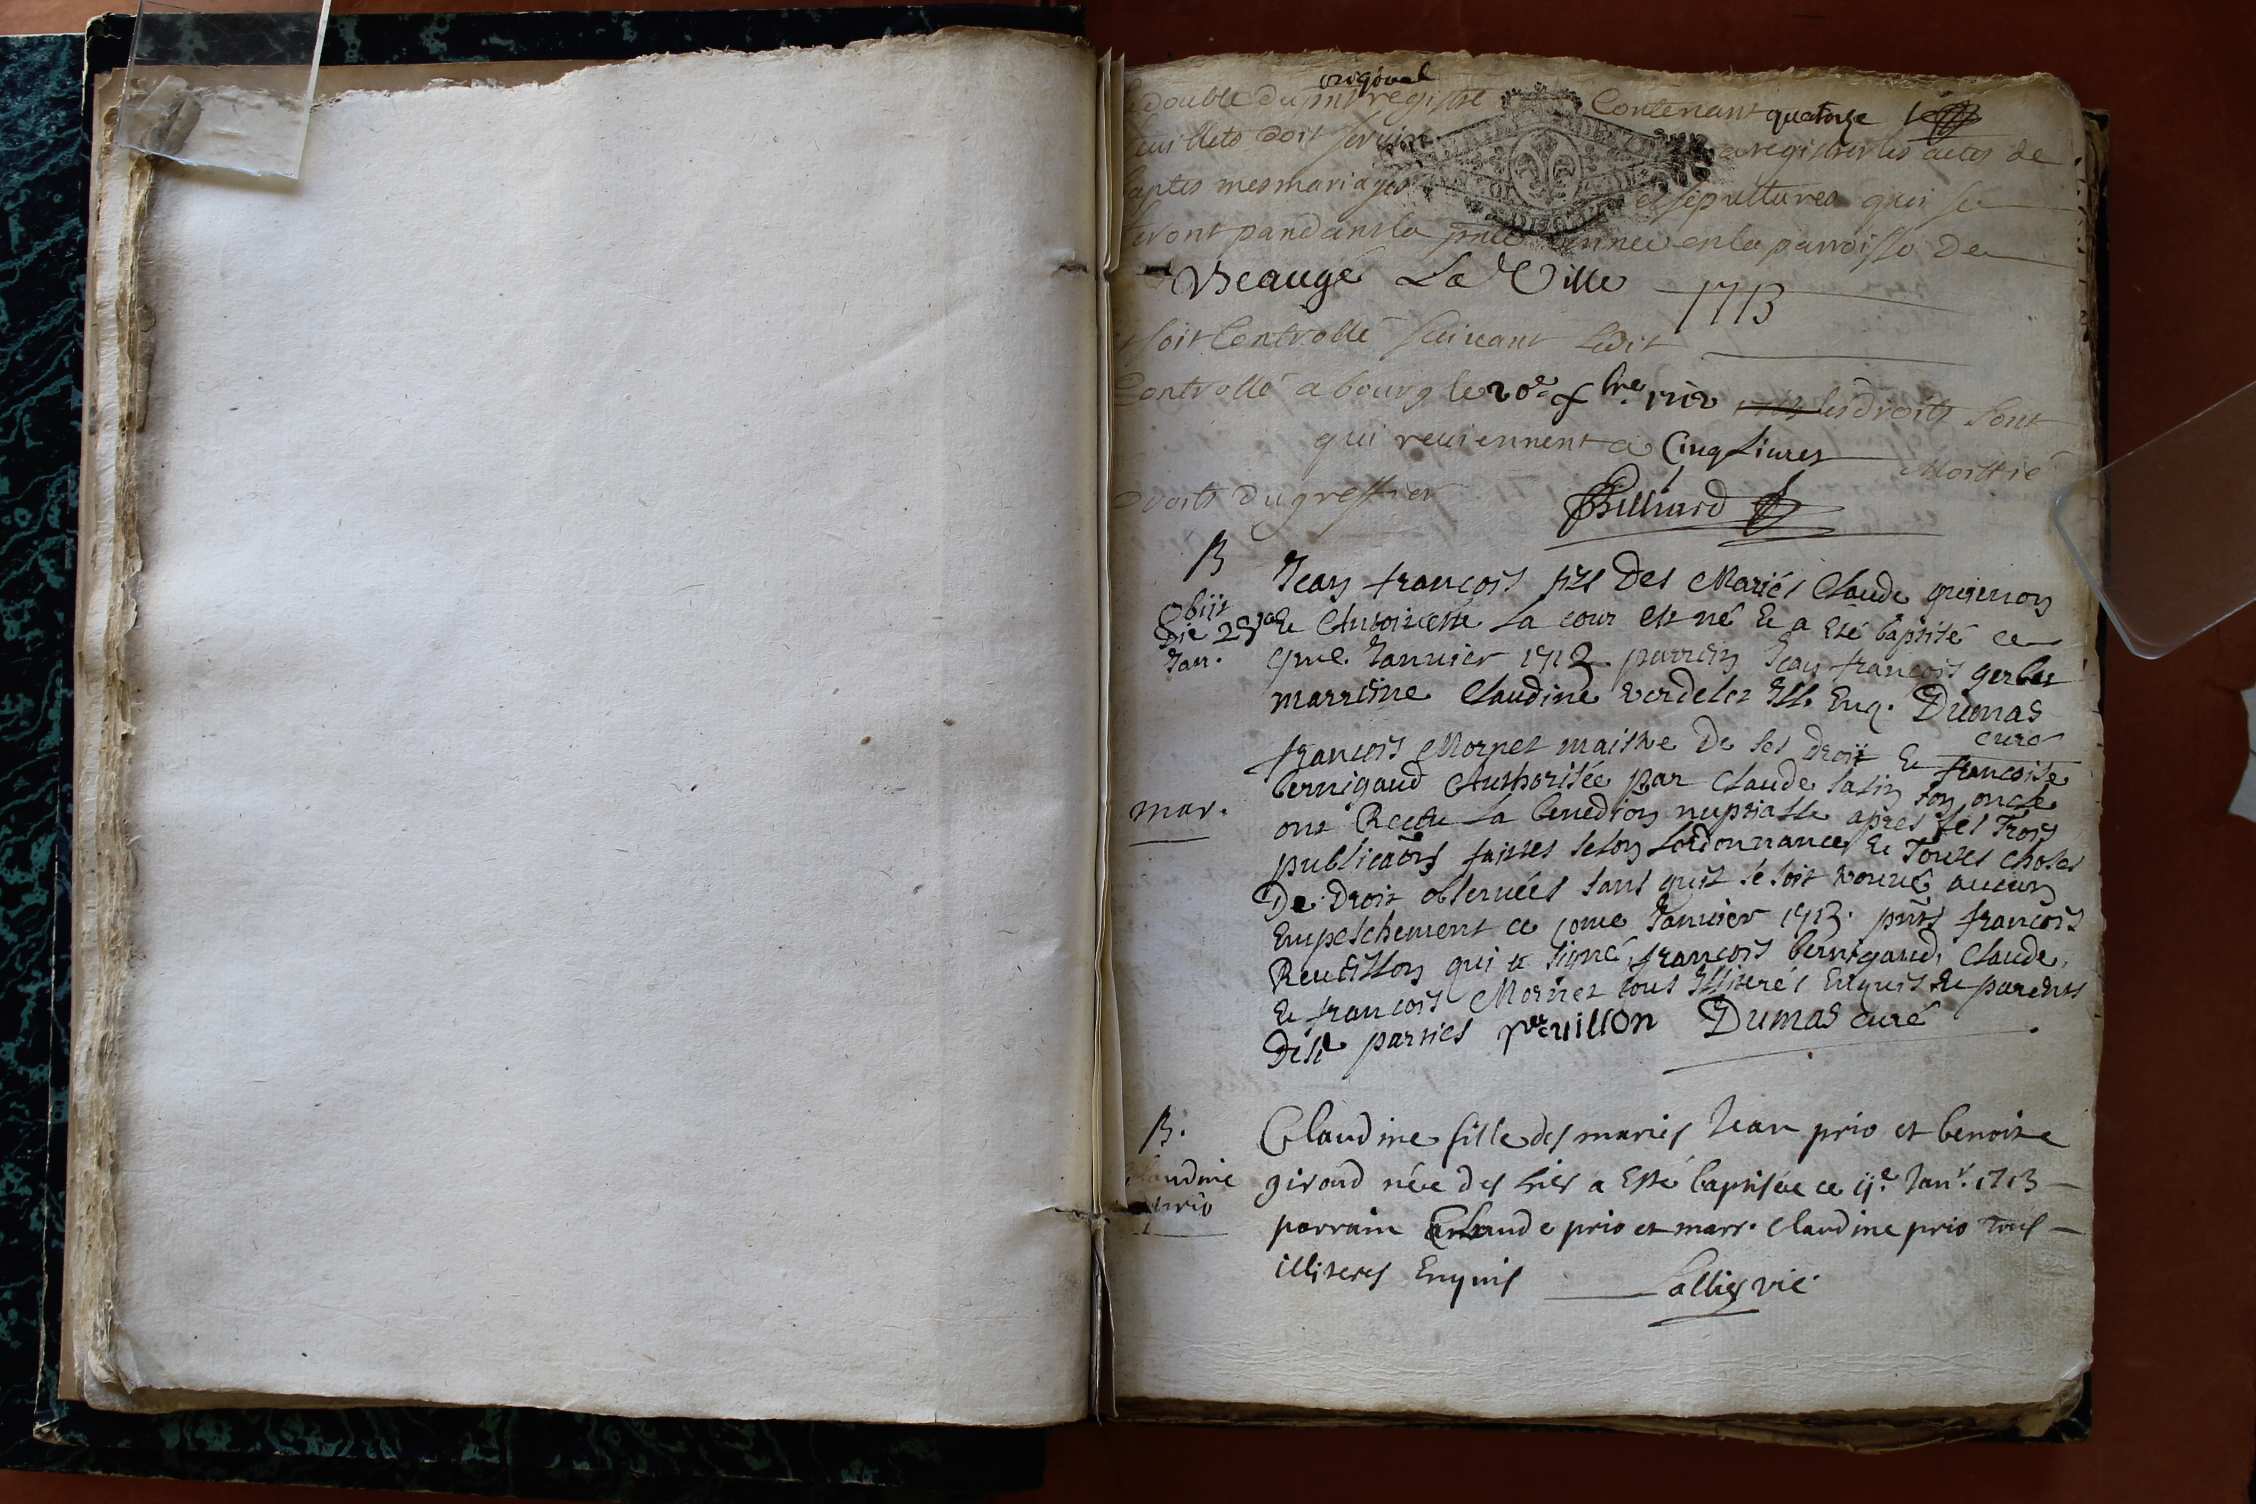 original
double du pnt registre Contenant quatorze
feuillets doit servir a registrer les actes de
baptesmes mariages et sepultures qui se
feront pandant la pnte année en la parroisse de
Beaugé La Ville 1713
soit Controllé suivant Ledit
Controllé a bourg le 20e xbre 1712 les droits sont
qui reviennent a Cinq Livres
Droits du greffier
Billiard
B
Obiit
die 29
Jan.
Jean françois fils Des Mariés Claude
& Anthoinette La cour est né & a Esté baptisé ce
Janvier 1713 parrein Jean françois gerbet
marreine Claudine verdelet Ill. Enq. Dumas
curé
mar.
françois Mornet maistre De ses droit & françoise
bernigaud Authorisée par Claude son oncle
ont Receu La benedion nuptialle apres les Trois
publicaons faittes selon Lordonnance & Toutes choses
De Droit observées sans quil se soit trouvé aucun
Empeschement ce Janvier 1713. pnts françois
qui a signé, françois bernigaud, Claude,
& françois Mornet tous Illiterés Enquis & parents
Desd parties Dumas curé
B.
Claudine
prio
Claudine fille des mariés Jean prio et benoite
giroud née des hier a Esté baptisée ce 11e Janv. 1713
parrain Claude prio et marr. Claudine prio Tous
illiteres Enquis Lallier vic.